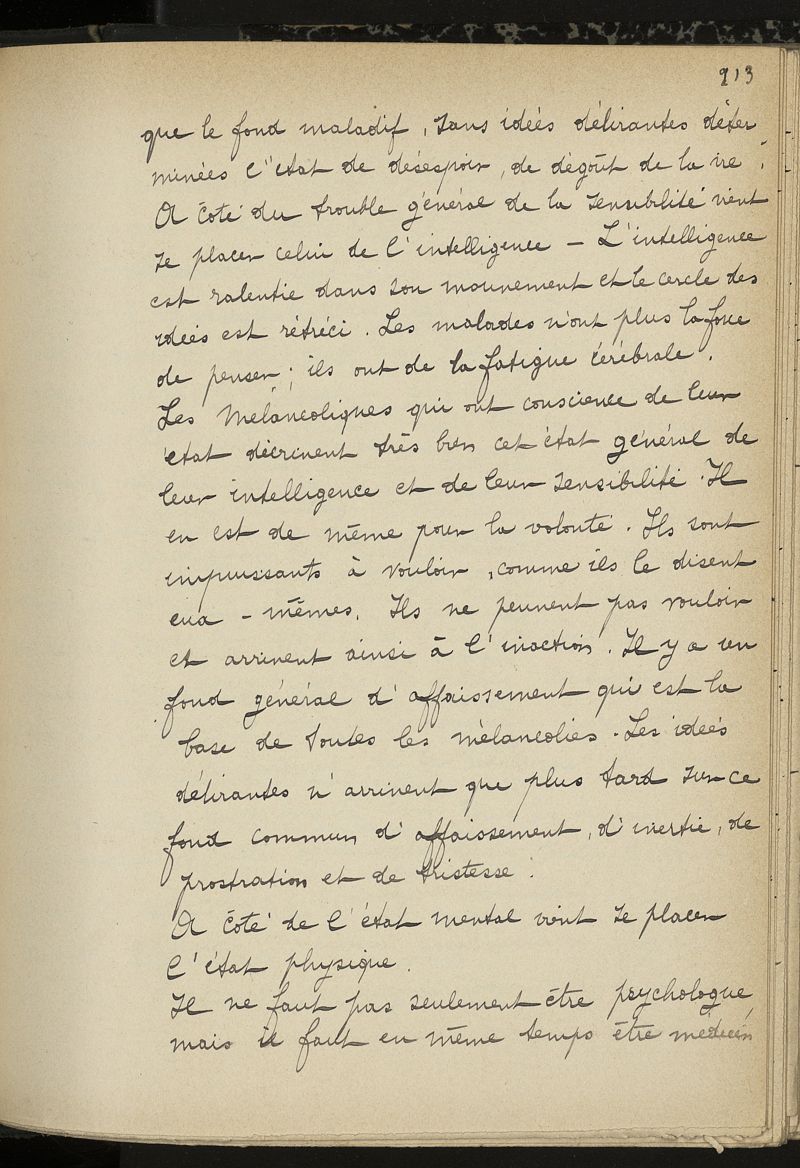 913
que le fond maladif, sans idées délirantes déter
minées l'état de désespoir, de dégoût de la vie.
A côté du trouble général de la sensibilité vient
se placer celui de l'intelligence - L'intelligence
est ralentie dans son mouvement et le cercle des
idées est rétréci. Les malades n'ont plus la force
de penser; ils ont de la fatigue cérébrale.
Les Mélancoliques qui ont conscience de leur
état décrivent très bien cet état général de
leur intelligence et de leur sensibilité. Il
en est de même pour la volonté. Ils sont
impuissants à vouloir, comme ils le disent
eux-mêmes. Ils ne peuvent pas vouloir
et arrivent ainsi à l'inaction. Il y a un
fond général d'affaissement qui est la
base de toutes les mélancolies. Les idées
délirantes n'arrivent que plus tard sur ce
fond commun d'affaissement, d'inertie, de
prostration et de tristesse.
A côté de l'état mental vient se placer
l'état physique.
Il ne faut pas seulement être psychologue
mais il faut en même temps être médecin